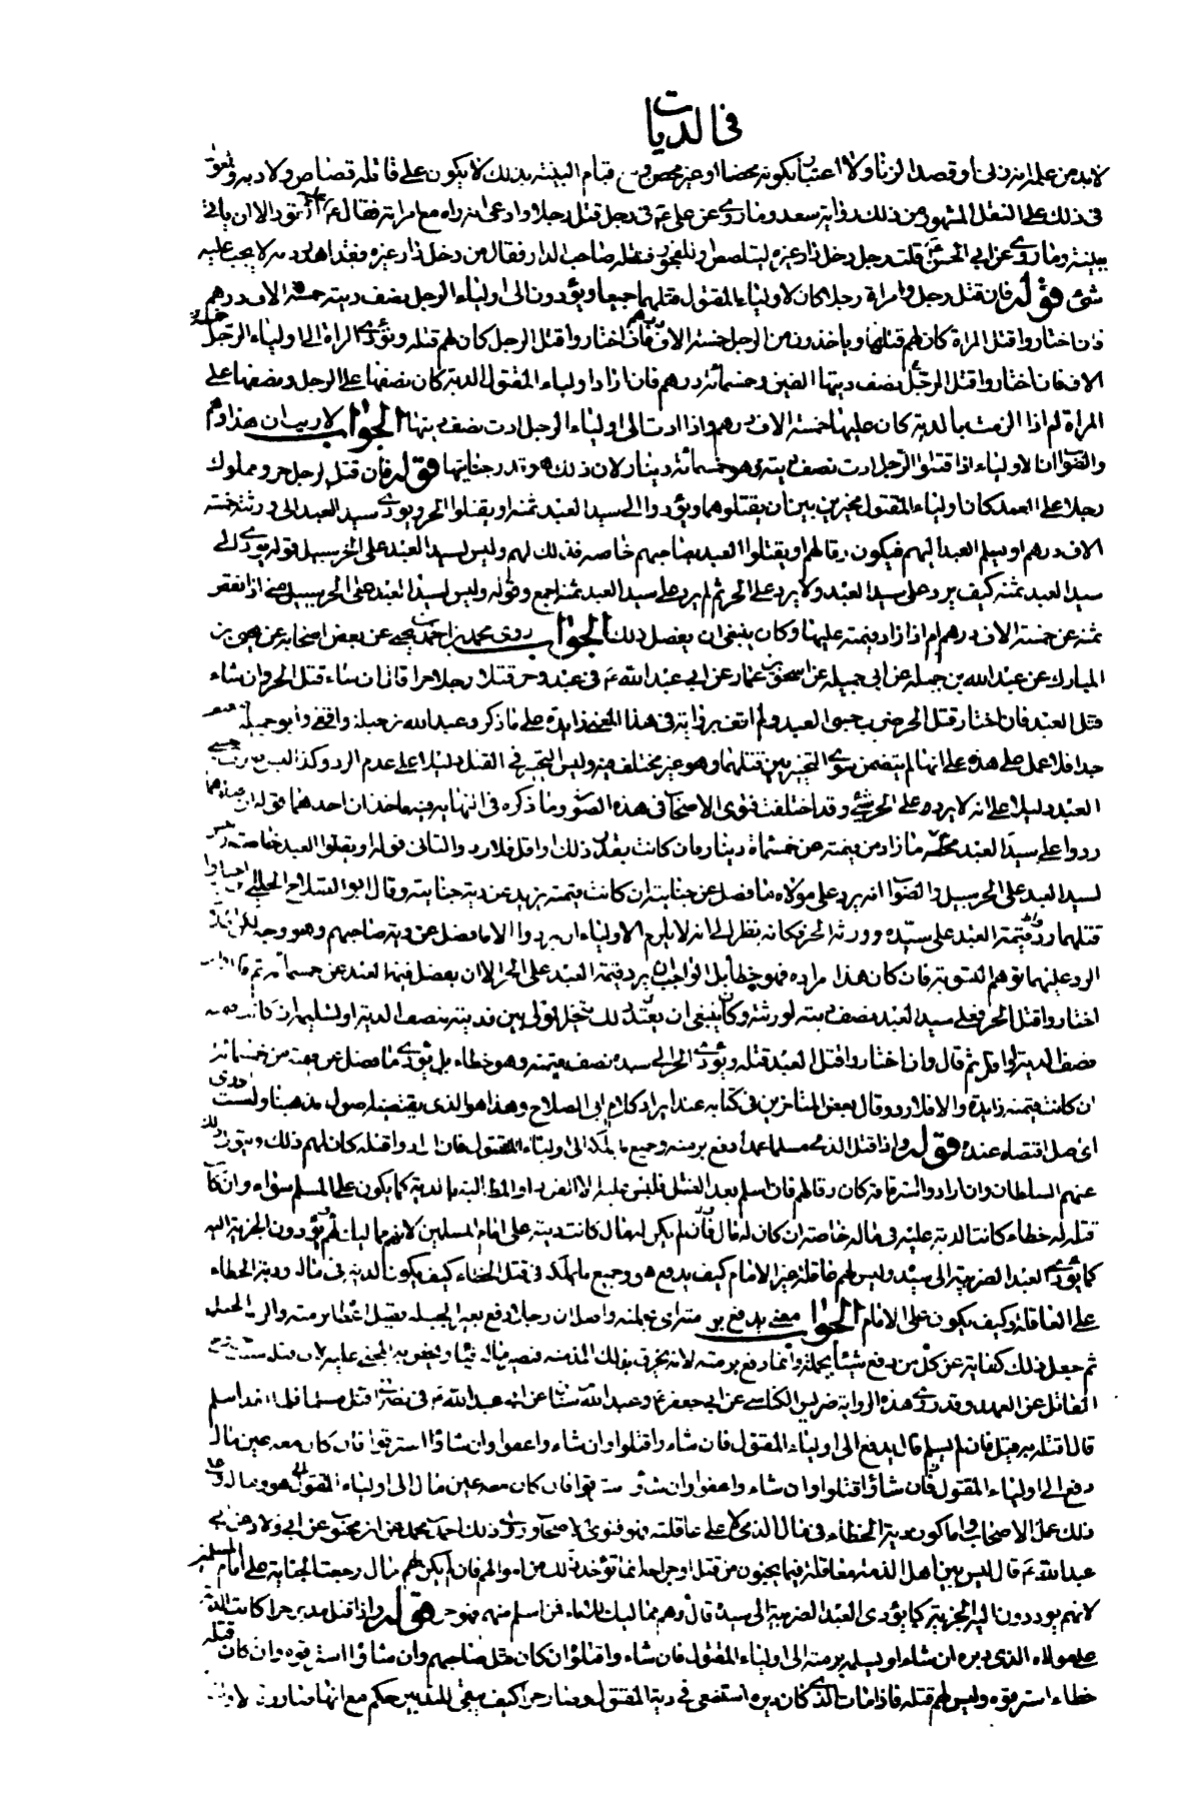 في الديات
لابد من علمه انه زنى او قصد الزنا ولا اعتبار بكونه محصنا او غير محصن ومع قيام البينة بذلك لا يكون على قاتله قصاص ولا دية
في ذلك على النقل المشهور من ذلك رواية سعد وما روى عن علي ع في رجل قتل رجلا وادعى انه راه مع امراته فقال ع القود الا ان ياتي
ببينة وما روى عن ابي الحسن ع قلت رجل دخل دار غيره ليتلصص او للفجور فقتله صاحب الدار فقال من دخل دار غيره فقد اهدر دمه لا يجب عليه
شئ قوله فان قتل رجل وامراة رجلا كان لاولياء المقتول قتلهما جميعا ويؤدون الى اولياء الرجل نصف ديته خمسة الاف درهم
فان اختاروا قتل المراة كان لهم قتلها وياخذون من الرجل خمسة الاف درهم فان اختاروا قتل الرجل كان لهم قتله وتؤدى المراة الى اولياء الرجل خمسة
الاف فان اختاروا قتل الرجل نصف ديتها الفين وخمسمائة درهم فان ارادوا اولياء المقتول الدية كان نصفها على الرجل ونصفها على
المراة لم اذا الزمت بالدية كان عليها خمسة الاف درهم واذا ادت الى اولياء الرجل ادت نصف ديتها الجواب لا ريب ان هذا وهم
والصواب ان لاولياء اذا قتلوا الرجل ادت نصف ديته وهو خمسمائة دينار لان ذلك هو قدر جنايتها قوله فان قتل رجل حر ومملوك
رجلا على العمد كان اولياء المقتول مخيرين بين ان يقتلوهما ويؤدوا الى سيد العبد ثمنه او يقتلوا الحر ويؤدى سيد العبد الى ورثته خمسة
الاف درهم او يسلم العبد اليهم فيكون رقا لهم او يقتلوا العبد صاحبهم خاصة فذلك لهم وليس لسيد العبد على الحر سبيل قوله يؤدى الى
سيد العبد ثمنه كيف يرد على سيد العبد ولا يرد على الحر ثم لم يرد على سيد العبد ثمنه اجمع وقوله وليس لسيد العبد على الحر سبيل
ثمنه عن خمسة الاف درهم ام اذا زاد قيمته عليها وكان ينبغي ان يفصل ذلك الجواب روى محمد بن احمد بن يحيى عن بعض اصحابه عن يحيى بن
المبارك عن عبد الله بن جبلة عن ابي جميلة عن اسحق بن عمار عن ابي عبد الله ع في عبد وحر قتلا رجلا حرا قال ان شاء قتل الحر وان شاء
قتل العبد فان اختار قتل الحر ضرب جنبى العبد ولم اقف برواية في هذا المعنى زايدة على ما ذكر وعبد الله بن جبلة واقفي وابو جميلة ضعيف
جدا فلا عمل على هذه على انها لم يتضمن سوى التخيير بين قتلهما وهو غير مختلف فيه وليس التخيير في القتل دليلا على عدم الرد وكذا
العبد دليلا على انه لا يرد على الحر شئ وقد اختلفت فتوى الاصحاب في هذه الصور وما ذكره في النهاية
ردوا على سيد العبد ما زاد من قيمته عن خمسمائة دينار فان كانت بقدر ذلك او اقل فلا رد والثاني قوله او يقتلوا العبد خاصة وليس
لسيد العبد على الحر سبيل والصواب انه يرد على مولاه ما فضل عن جنايته ان كانت قيمته يزيد عن دية جنايته وقال ابو الصلاح الحلبي
قتلهما رد قيمة العبد على سيده وورثة الحر فكانه نظر الى انه لا يلزم الاولياء ان يردوا الا ما فضل عن دية صاحبهم وهو وجه
الرد عليهما توهم التسوية فان كان هذا مراده فهو خطأ بل الواجب ان يرد قيمة العبد على الحر الا ان يفضل قيمة العبد عن خمسمائة ثم قال
اختاروا قتل الحر فعلى سيد العبد نصف ديته لورثته وكان ينبغي ان يقيد ذلك بتخير المولى بين فديته بنصف الدية او تسليمه ان كانت قيمته
نصف الدية او اقل ثم قال واذا اختاروا قتل العبد قتله ويؤدى الحر الى سيده نصف قيمته وهو خطاء بل يؤدى ما فضل عن قيمته من خمسمائة
ان كانت قيمته زايدة والا فلا رد وقال بعض المتاخرين في كتابه عند ايراد كلام ابي الصلاح وهذا هو الذى يقتضيه اصول مذهبنا ولست ادرى
اى اصل اقتضاه عنده قوله واذا قتل الذمي مسلما عمدا دفع برمته وجميع ما يملكه الى اولياء المقتول فان ارادوا قتله كان لهم ذلك ويتولى ذلك
عنهم السلطان وان ارادوا استرقاقه كان رقا لهم فان اسلم بعد القتل فليس عليه الا القود او المطالبة بالدية كما يكون على المسلم سواء وان كان
قتله له خطاء كانت الدية عليه في ماله خاصة ان كان له مال فان لم يكن له مال كانت ديته على امام المسلمين لانهم مماليك له يؤدون الجزية اليه
كما يؤدى العبد الضريبة الى سيده وليس لهم عاقلة غير الامام كيف يدفع هو وجميع ما يملكه في قتل الخطاء كيف يكون الدية في ماله ودية الخطاء
على العاقلة وكيف يكون على الامام الجواب معنى يدفع برمته اى بجملته واصله ان رجلا دفع بعيرا بحبله فقيل اعطا برمته والرمة الحبل
ثم جعل ذلك كفاية عن كل من دفع شيئا بجملته وانما دفع برمته لانه يخرق بذلك الذمة فيصير ماله فيئا
القاتل عن العهد وقد روى هذه الرواية ضريس الكناسي عن ابي جعفر ع وعبد الله بن سنان عن ابي عبد الله ع في نصراني قتل مسلما فلما اخذ اسلم
قال اقتله به قيل فان لم يسلم قال يدفع الى اولياء المقتول فان شاؤا قتلوا وان شاؤا عفوا وان شاؤا استرقوا فان كان معه عين مال
دفع الى اولياء المقتول فان شاؤا قتلوا وان شاؤا عفوا وان شاؤا استرقوا فان كان معه عين مال الى اولياء المقتول هو وماله وعلى
ذلك عمل الاصحاب واما كون دية الخطاء في مال الذمي لا على عاقلته فهو فتوى الاصحاب وروى ذلك احمد بن محمد عن ابن محبوب عن ابي ولاد عن ابي
عبد الله ع قال ليس بين اهل الذمة معاقلة فيما يجنون من قتل او جراحة انما تؤخذ ذلك من اموالهم فان لم يكن لهم مال رجعت الجناية على امام المسلمين
لانهم يوددون اليه الجزية كما يؤدى العبد الضريبة الى سيده قال وهم مماليك للامام فمن اسلم منهم فهو حر قوله واذا قتل مدبر حرا كانت الدية
على مولاه الذى دبره ان شاء او يسلمه برمته الى اولياء المقتول فان شاؤا قتلوا ان كان قتل صاحبهم وان شاؤا استرقوه وان كان قتله
خطاء استرقوه وليس لهم قتله فاذا مات الذى كان دبره استسعى في دية المقتول وصار حرا كيف يبقى للتدبير حكم مع انها